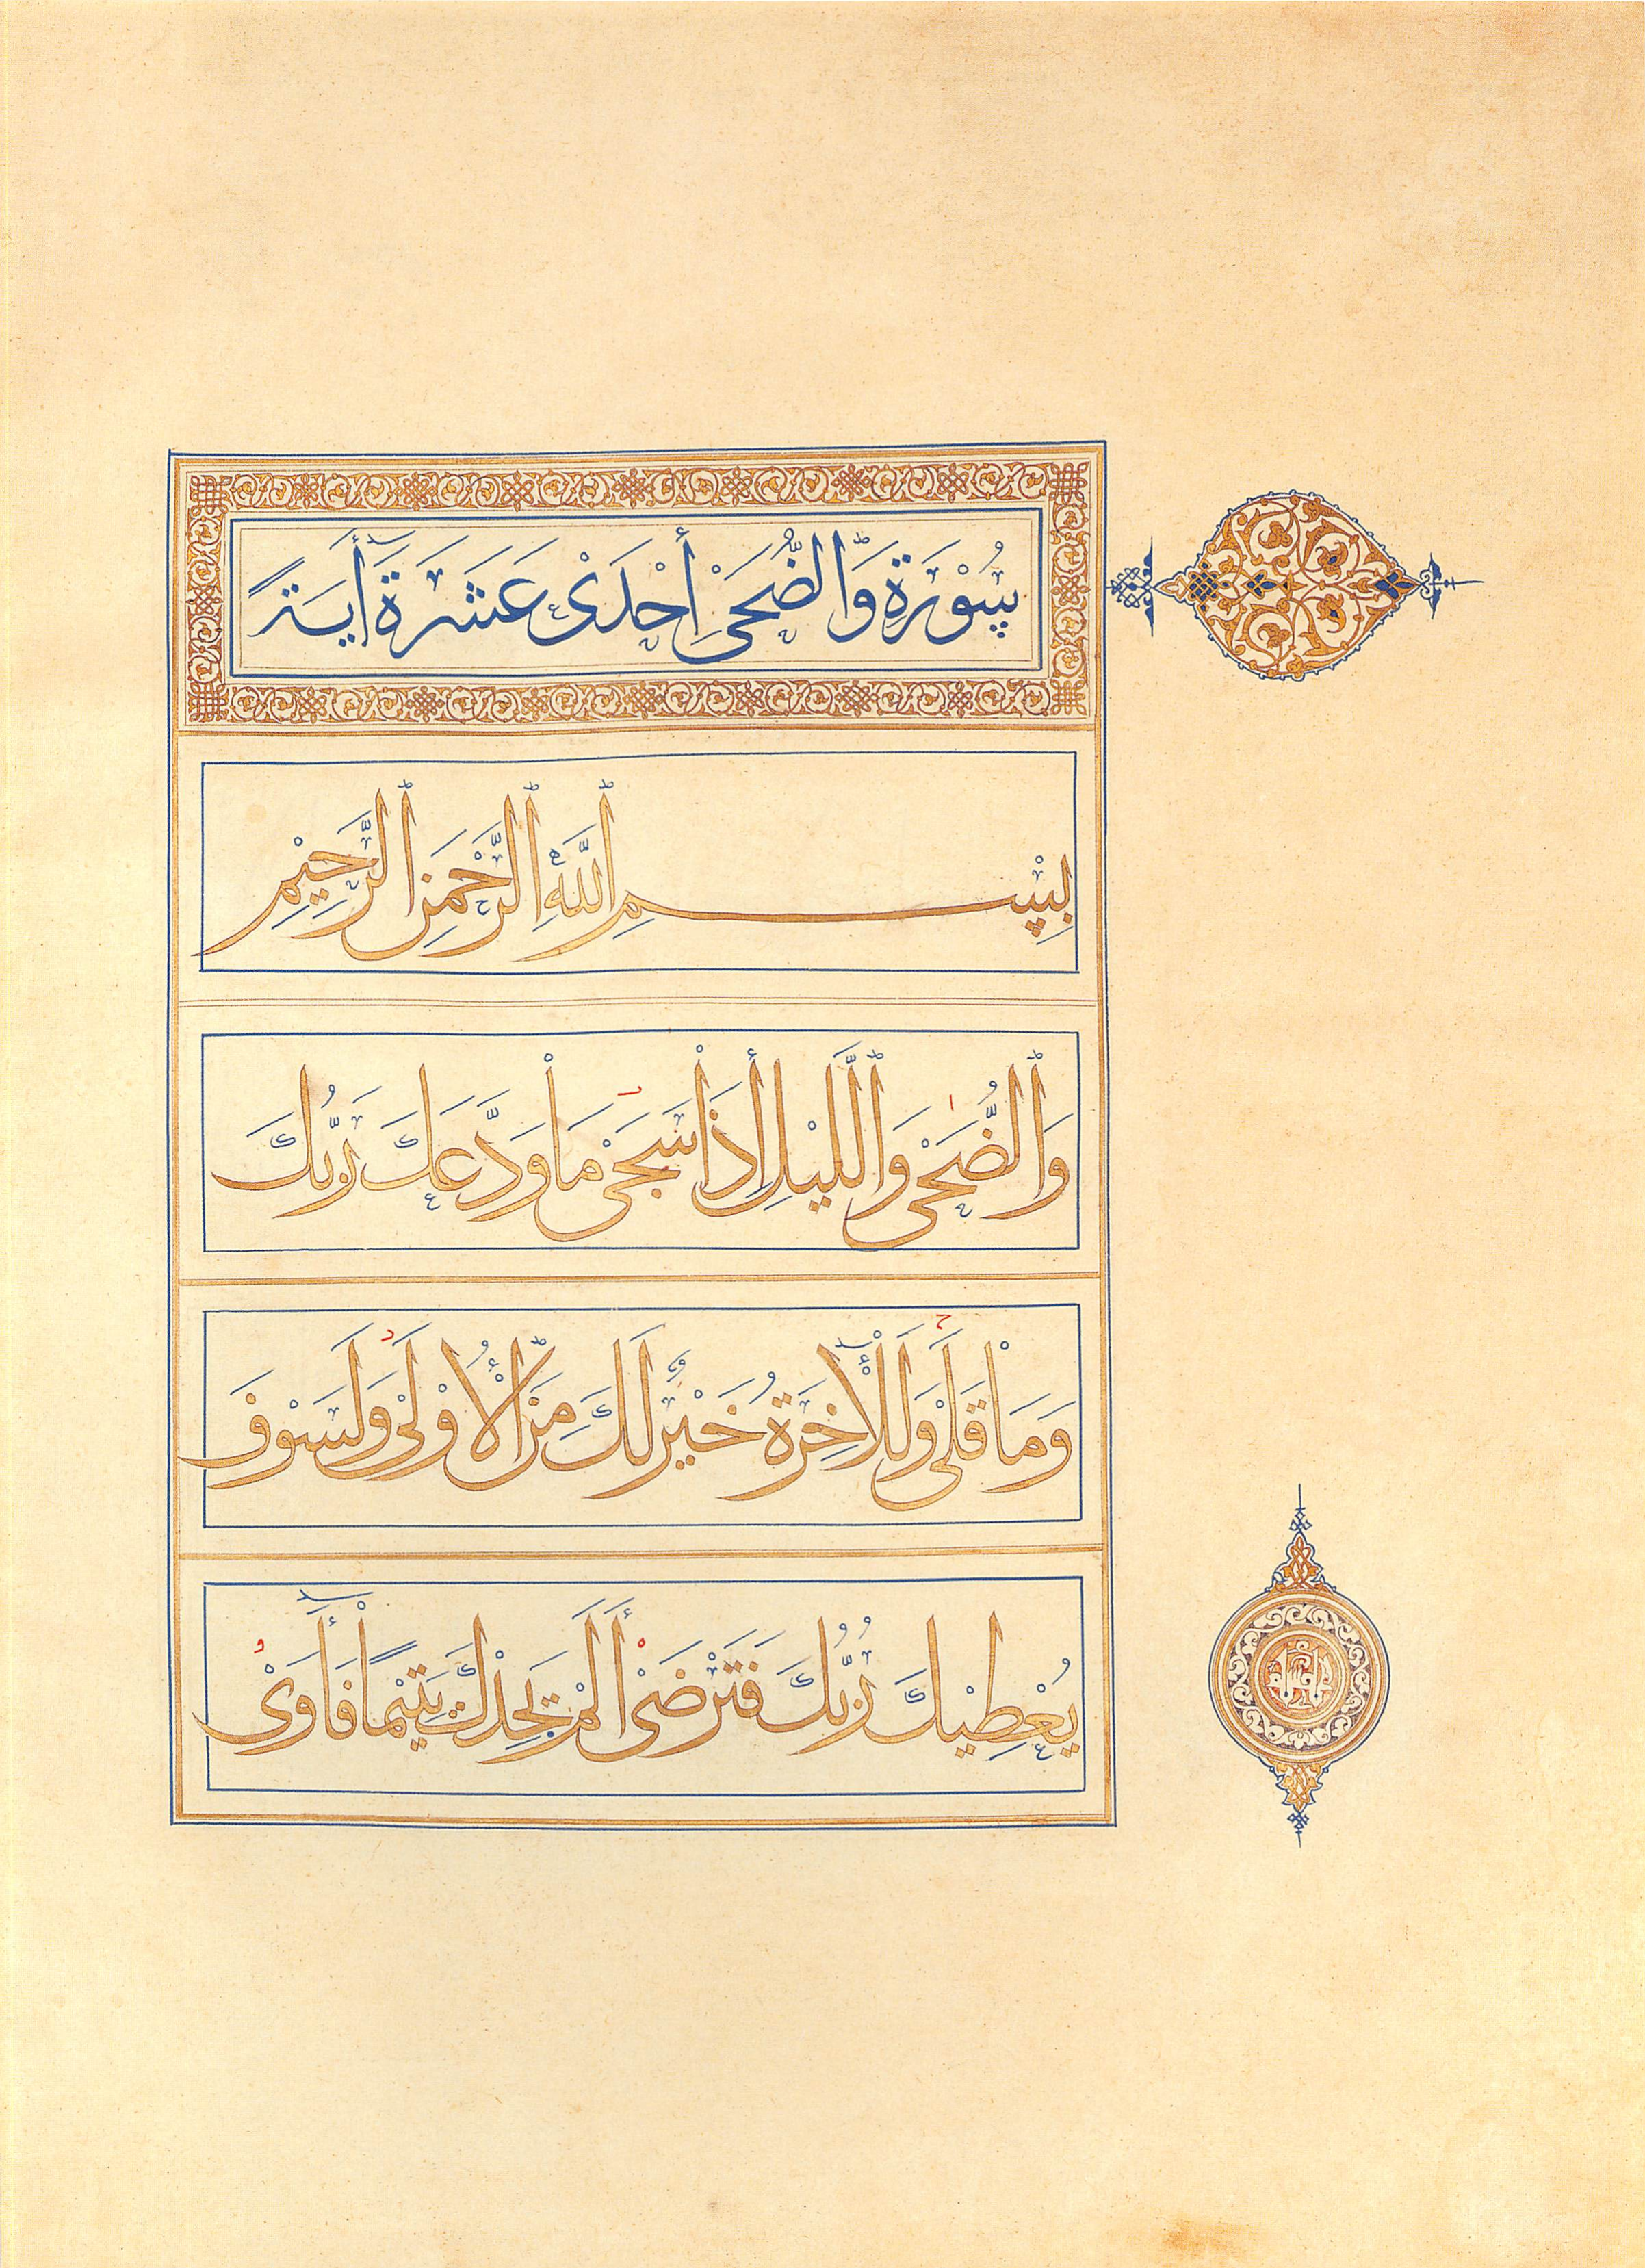 سُوْرَةُ وَّالضُّحَىْ أِحْدَىْ عَشَرَةَ أٓيَةً
بِسْمِ اللّٰهِ الرَّحْمَنِ الرَّحِيْمِ
وَالضُّحَىْ وَاللَّيْلِ أِذَاْ سَجَىْ مَاْ وَدَّعَكَ رَبُّكَ
وَمَاْ قَلَىْ وَلَلْأٓخِرَةُ خَيْرٌ لَكَ مِنَ الْأُوْلَىْ وَلَسَوْفَ
يُعْطِيْكَ رَبُّكَ فَتَرْضَىْ أَلَمْ يَجِدْكَ يَتِيْمًا فَأٓوَىْ